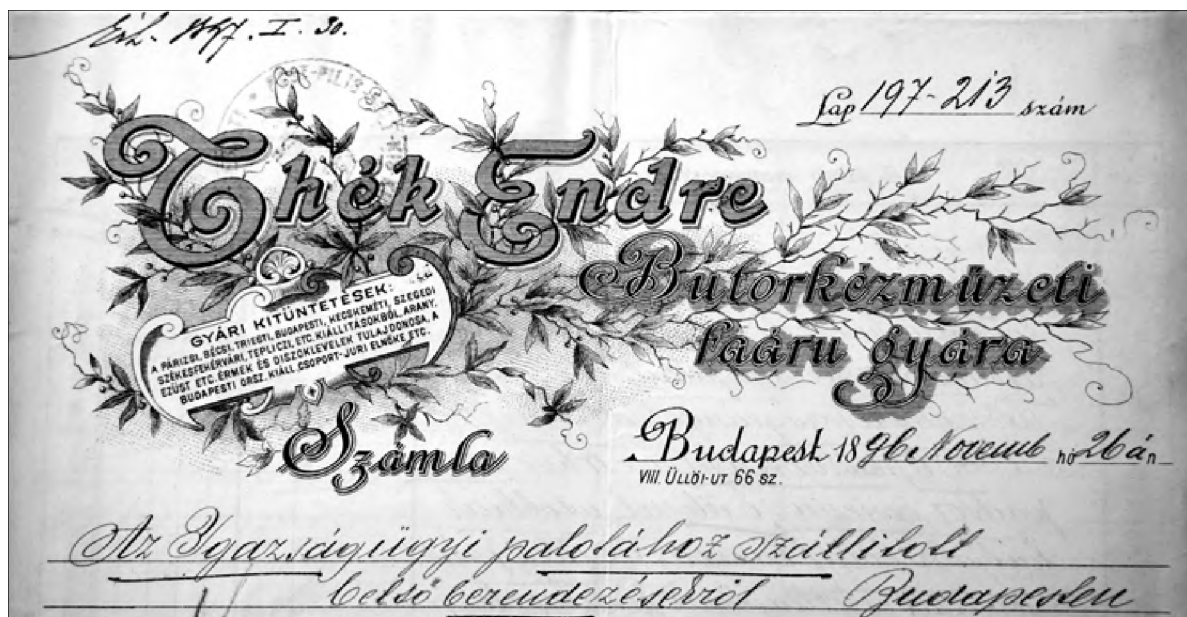 1897. I. 30.
Lap 197-213 szám
Thék Endre
Butorkézmüzeti
faáru gyára
GYÁRI KITÜNTETÉSEK:
A PÁRIZSI, BÉCSI, TRIESTI, BUDAPESTI, KECSKEMÉTI, SZEGEDI
SZÉKESFEHÉRVÁRI, TEPLICZI, ETC. KIÁLLITÁSOKBÓL, ARANY,
EZÜST ETC. ÉRMEK ÉS DISZOKLEVELEK TULAJDONOSA, A
BUDAPESTI ORSZ. KIÁLL. CSOPORT-JURI ELNÖKE ETC.
Számla
Budapest 1896 Novemb hó 26 án
VIII. ÜLLŐI-UT 66 SZ.
Az Igazságügyi palotához szállitott
belső berendezésekről Budapesten